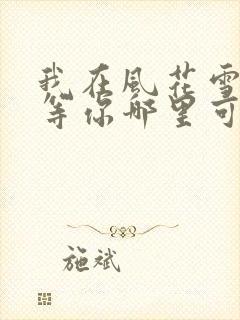 我在風花雪
等你那里可
施斌